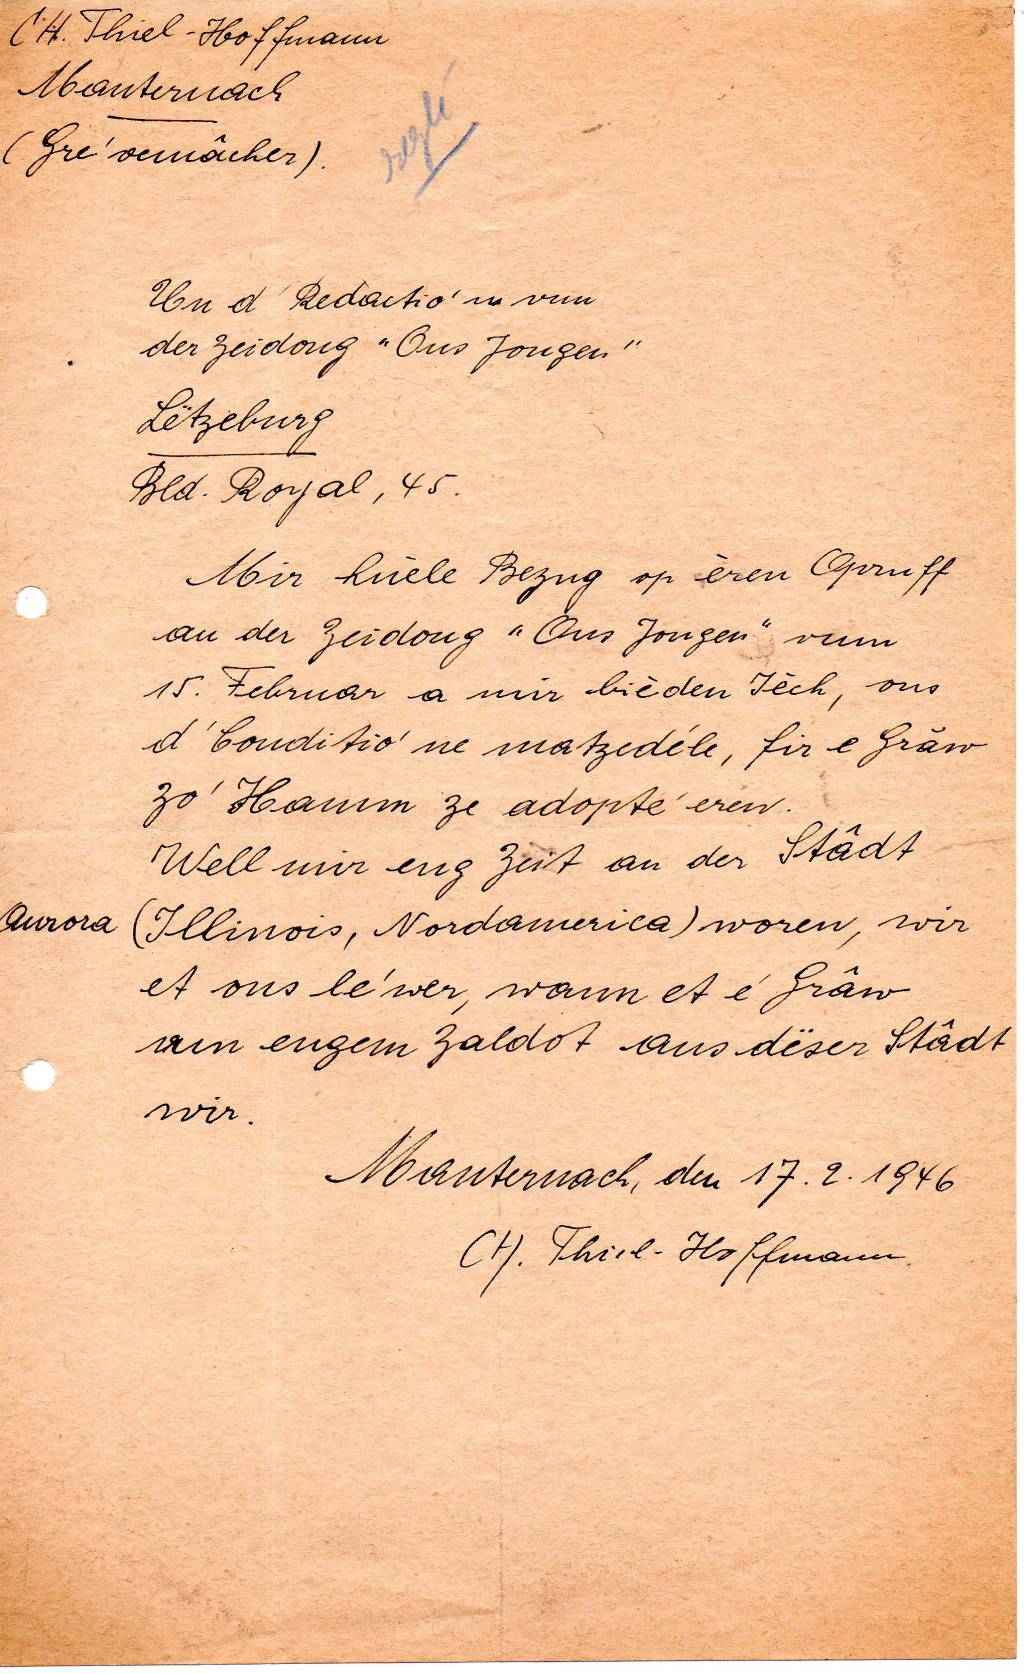 CH. Thiel-Hoffmann
Manternach
(Gre'vemâcher).
reglé
Un d'Redactio'n vun
der Zeidong "Ons Jongen"
Lëtzeburg
Bld. Royal, 45.
Mir huèle Bezug op èren Opruff
an der Zeidong "Ons Jongen" vum
15. Februar a mir bièden Ièch, ons
d'Conditio'ne matzedéle, fir e Grâw
zo' Hamm ze adopte'eren.
Well mir eng Zeit an der Stâdt
Aurora (Illinois, Nordamerica) woren, wir
et ons le'wer, wann et e' Grâw
vun engem Zaldot aus dëser Stâdt
wir.
Manternach, den 17.2.1946
CH. Thiel-Hoffmann